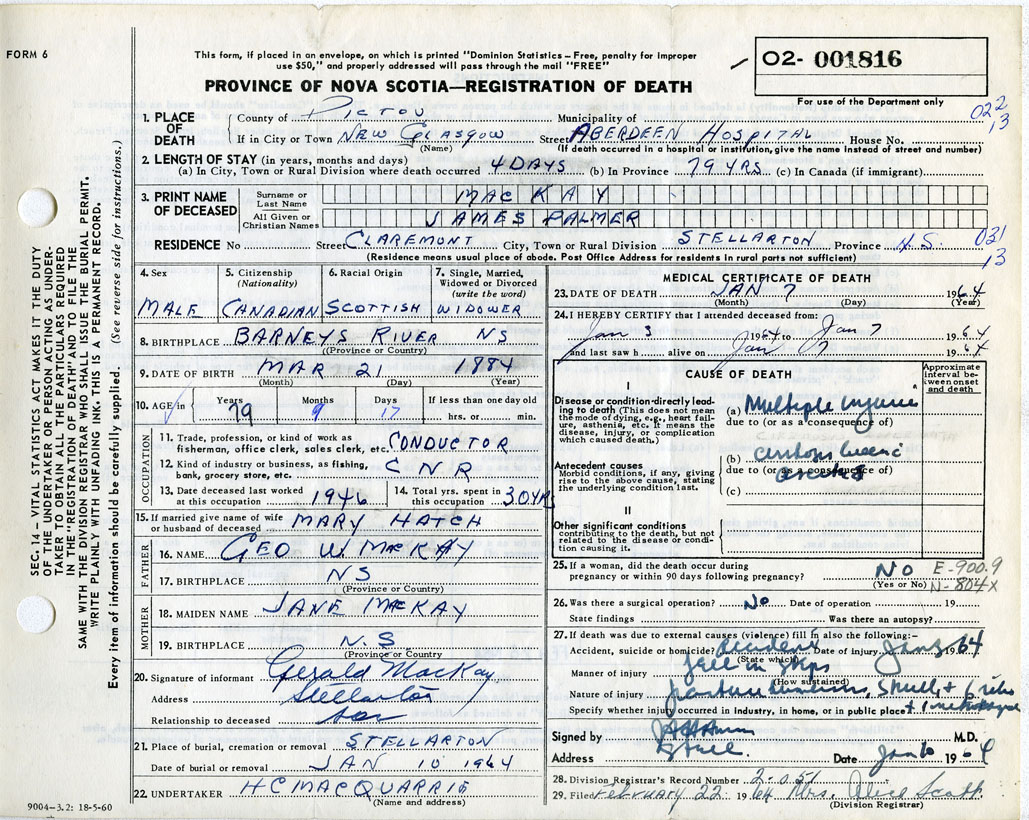 FORM 6
This form, if placed in an envelope, on which is printed "Dominion Statistics – Free, penalty for improper
use $50," and properly addressed will pass through the mail "FREE"
PROVINCE OF NOVA SCOTIA—REGISTRATION OF DEATH
02- 001816
For use of the Department only
022
13
1. PLACE OF DEATH
County of PICTOU Municipality of
If in City or Town NEW GLASGOW Street ABERDEEN HOSPITAL House No.
(Name) (If death occurred in a hospital or institution, give the name instead of street and number)
2. LENGTH OF STAY (in years, months and days)
(a) In City, Town or Rural Division where death occurred 4 DAYS (b) In Province 79 YRS (c) In Canada (if immigrant)
3. PRINT NAME OF DECEASED
Surname or Last Name MACKAY
All Given or Christian Names JAMES PALMER
RESIDENCE No Street CLAREMONT City, Town or Rural Division STELLARTON Province N.S. 031
13
(Residence means usual place of abode. Post Office Address for residents in rural parts not sufficient)
4. Sex
MALE
5. Citizenship (Nationality)
CANADIAN
6. Racial Origin
SCOTTISH
7. Single, Married, Widowed or Divorced (write the word)
WIDOWER
8. BIRTHPLACE BARNEYS RIVER NS
(Province or Country)
9. DATE OF BIRTH MAR 21 1884
(Month) (Day) (Year)
10. AGE in Years 79 Months 9 Days 17 If less than one day old
hrs. or min.
OCCUPATION
11. Trade, profession, or kind of work as
fisherman, office clerk, sales clerk, etc. CONDUCTOR
12. Kind of industry or business, as fishing,
bank, grocery store, etc. CNR
13. Date deceased last worked
at this occupation 1946
14. Total yrs. spent in
this occupation 30 YRS
15. If married give name of wife
or husband of deceased MARY HATCH
FATHER
16. NAME GEO W. MACKAY
17. BIRTHPLACE NS
(Province or Country)
MOTHER
18. MAIDEN NAME JANE MACKAY
19. BIRTHPLACE N.S
(Province or Country
20. Signature of informant Gerald MacKay
Address Stellarton
Relationship to deceased son
21. Place of burial, cremation or removal STELLARTON
Date of burial or removal JAN 10 1964
22. UNDERTAKER H C MACQUARRIE
(Name and address)
MEDICAL CERTIFICATE OF DEATH
23. DATE OF DEATH JAN 7 1964
(Month) (Day) (Year)
24. I HEREBY CERTIFY that I attended deceased from:
Jan 3 1964 to Jan 7 1964
and last saw h alive on Jan 7 1964
CAUSE OF DEATH
Approximate interval between onset and death
I
Disease or condition directly leading to death (This does not mean the mode of dying, e.g., heart failure, asthenia, etc. It means the disease, injury, or complication which caused death.)
(a) Multiple injuries
due to (or as a consequence of)
Antecedent causes
Morbid conditions, if any, giving rise to the above cause, stating the underlying condition last.
(b)
due to (or as a consequence of)
(c)
II
Other significant conditions contributing to the death, but not related to the disease or condition causing it.
25. If a woman, did the death occur during
pregnancy or within 90 days following pregnancy? NO
(Yes or No)
E-900.9
N-804X
26. Was there a surgical operation? No Date of operation 19
State findings Was there an autopsy?
27. If death was due to external causes (violence) fill in also the following:–
Accident, suicide or homicide? Accident Date of injury Jan 3 1964
(State which)
Manner of injury fell on steps
(How sustained)
Nature of injury fracture Skull + 6 ribs
Specify whether injury occurred in industry, in home, or in public place
Signed by M.D.
Address Date Jan 1964
28. Division Registrar's Record Number 2-051
29. Filed February 22 1964 Mrs. Alice Scott
(Division Registrar)
SEC. 14 – VITAL STATISTICS ACT MAKES IT THE DUTY
OF THE UNDERTAKER OR PERSON ACTING AS UNDER-
TAKER TO OBTAIN ALL THE PARTICULARS REQUIRED
IN THE "REGISTRATION OF DEATH" AND TO FILE THE
SAME WITH THE DIVISION REGISTRAR WHO SHALL ISSUE THE BURIAL PERMIT.
WRITE PLAINLY WITH UNFADING INK. THIS IS A PERMANENT RECORD.
Every item of information should be carefully supplied. (See reverse side for instructions.)
9004–3.2: 18-5-60